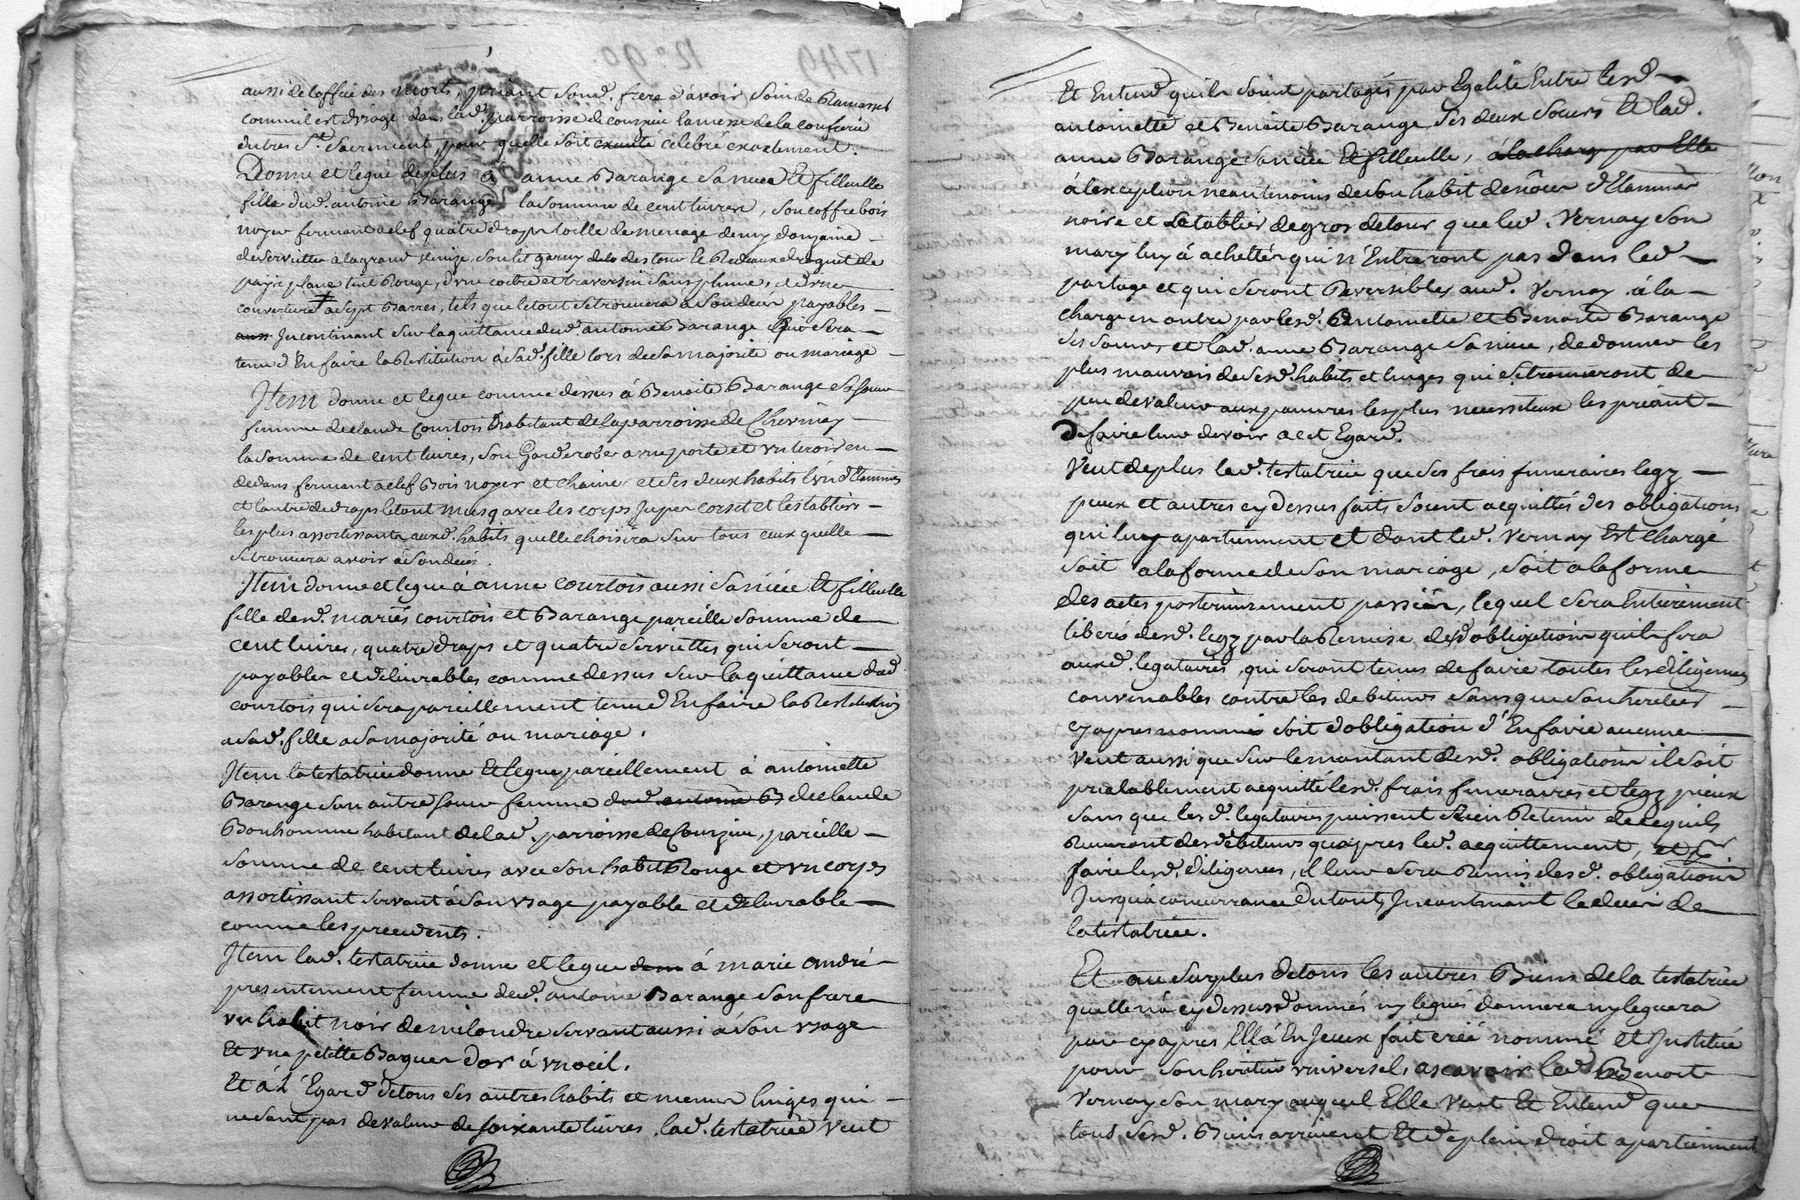 aussi de loffice des morts, priant sond. frere d'avoir soin de Ramasser
comm'il est d'usage dans lad. parroisse de courzieu la messe de la confrerie
du tres St. Sacrement, pour quelle soit celebré exactement.
Donne et legue de plus à anne Barange sa niece Et filleulle
fille dud. antoine Barange la somme de cent livres, son coffre bois
noyer fermant a clef quatre draps toille de menage demy douzaine
de serviettes a la grand venize, son lit garny de tour le Rideaux droguet de
payis plane teint Rouge, d'une coitre et traversin sans plumes, et d'une
couverture a sept Barres, tels que le tout se trouvera à son deces payables
Incontinant sur la quittance dud antoine Barange qui sera
tenud En faire la Restitution à sad. fille lors de sa majorité ou mariage
Item donne et legue comme dessus à Benoite Barange sa soeur
femme de claude Courtois habitant de la parroisse de Chevinay
la somme de cent livres, son Garderobe a une porte et un tiroir en
dedans fermant a clef Bois noyer et chaine et ses deux habits l'un d'Etammes
et l'autre de draps le tout musq avec les corps Jupes corset et les tabliers
les plus assortissants auxd. habits quelle choisira sur tous ceux quelle
se trouvera avoir à son deces.
Item donne et legue à anne courtois aussi sa niece Et filleulle
fille desd. mariés courtois et Barange pareille somme de
cent livres, quatre draps et quatre serviettes qui seront
payables et delivrables comme dessus sur la quittance dud
courtois qui sera pareillement tenud En faire la Restitution
a sad. fille a sa majorité ou mariage.
Item la testatrice donne Et legue pareillement à antoinette
Barange son autre soeur femme dud. antoine B de claude
Bonhomme habitant de lad. parroisse de Courzieu, pareille
somme de cent livres avec son habit Rouge et un corps
assortissant servant à son usage payable et delivrable
comme les precedents.
Item lad. testatrice donne et legue à marie andré
presentement femme dud. antoine Barange son frere
un habit noir de mi londre servant aussi à son usage
Et une petite Bague d'or à un oeil.
Et à L'Egard de tous ses autres habits et menus linges qui
ne sont pas de valeur de soixante livres, lad. testatrice veut
Et Entend quils soient partagés par Egalité Entre lesd
antoinette et Benoite Barange, ses deux soeurs Et lad.
anne Barange sa niece Et filleulle, à la charge par Elle
à l'exception neantmoins de son habit de nôce d'Etammes
noire et le tablier de gros de tour que led. Vernay son
mary luy à achetté qui n'Entreront pas dans led
partage et qui seront Reversibles aud. Vernay à la
charge en outre par lesd. antoinette et Benoite Barange
ses soeurs, et lad. anne Barange sa niece, de donner les
plus mauvais de sesd. habits et linges qui se trouveront de
peu de valeur aux pauvres les plus necessiteux les priant
de faire leur devoir a cet Egard.
Veut de plus lad. testatrice que ses frais funeraires legz
pieux et autres cy dessus faits soient acquittés des obligations
qui luy apartiennent et dont led. Vernay Est chargé
soit a la forme de son mariage, soit a la forme
des actes posterieurement passés, lequel sera Entierement
liberés desd. legz par la Remise desd obligations quil fera
auxd. legataires, qui seront tenus de faire toutes les diligences
convenables contre les debiteurs sans que son heritier
cy apres nommé soit d'obligation d'En faire aucune
Veut aussi que sur le montant desd. obligations il soit
prealablement acquitté lesd. frais funeraires et legz pieux
sans que lesd. legataires puissent Rien Retenir de ce quils
Recevront des debiteurs qu'apres led. acquittement,
faire lesd. diligences, il leur sera Remis desd. obligations
Jusqua concurrance du tout, Incontinant le deces de
la testatrice.
Et au surplus de tous les autres Biens de la testatrice
quelle n'à cy dessus donnés ny legués donnera ny leguera
par cy apres Ella En Iceux fait créé nommé et Institué
pour son heritier universel, ascavoir led Benoit
Vernay son mary auquel Elle Veut Et Entend que
tous sesd. Biens arrivent Et de plein droit apartiennent